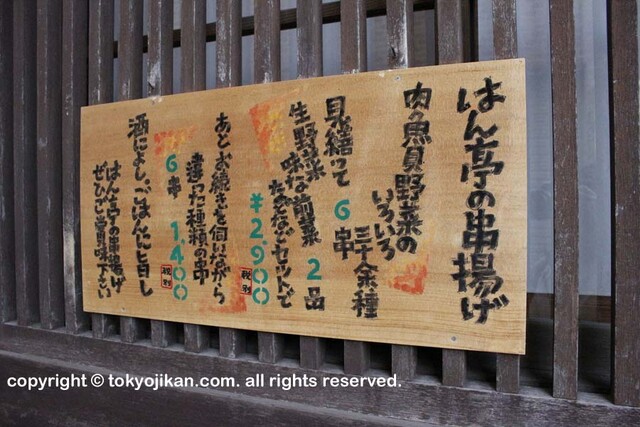 はん亭の串揚げ
肉魚貝野菜の
いろいろ
三十余種
見繕って6串
生野菜 味な前菜2品
などなどセットで
¥2,900
税別
あとお続きを伺いながら
違った種類の串
6串 1,400
税別
酒によし、ごはんに良し
はん亭の串揚げ
ぜひご賞味下さい
copyright © tokyojikan.com. all rights reserved.